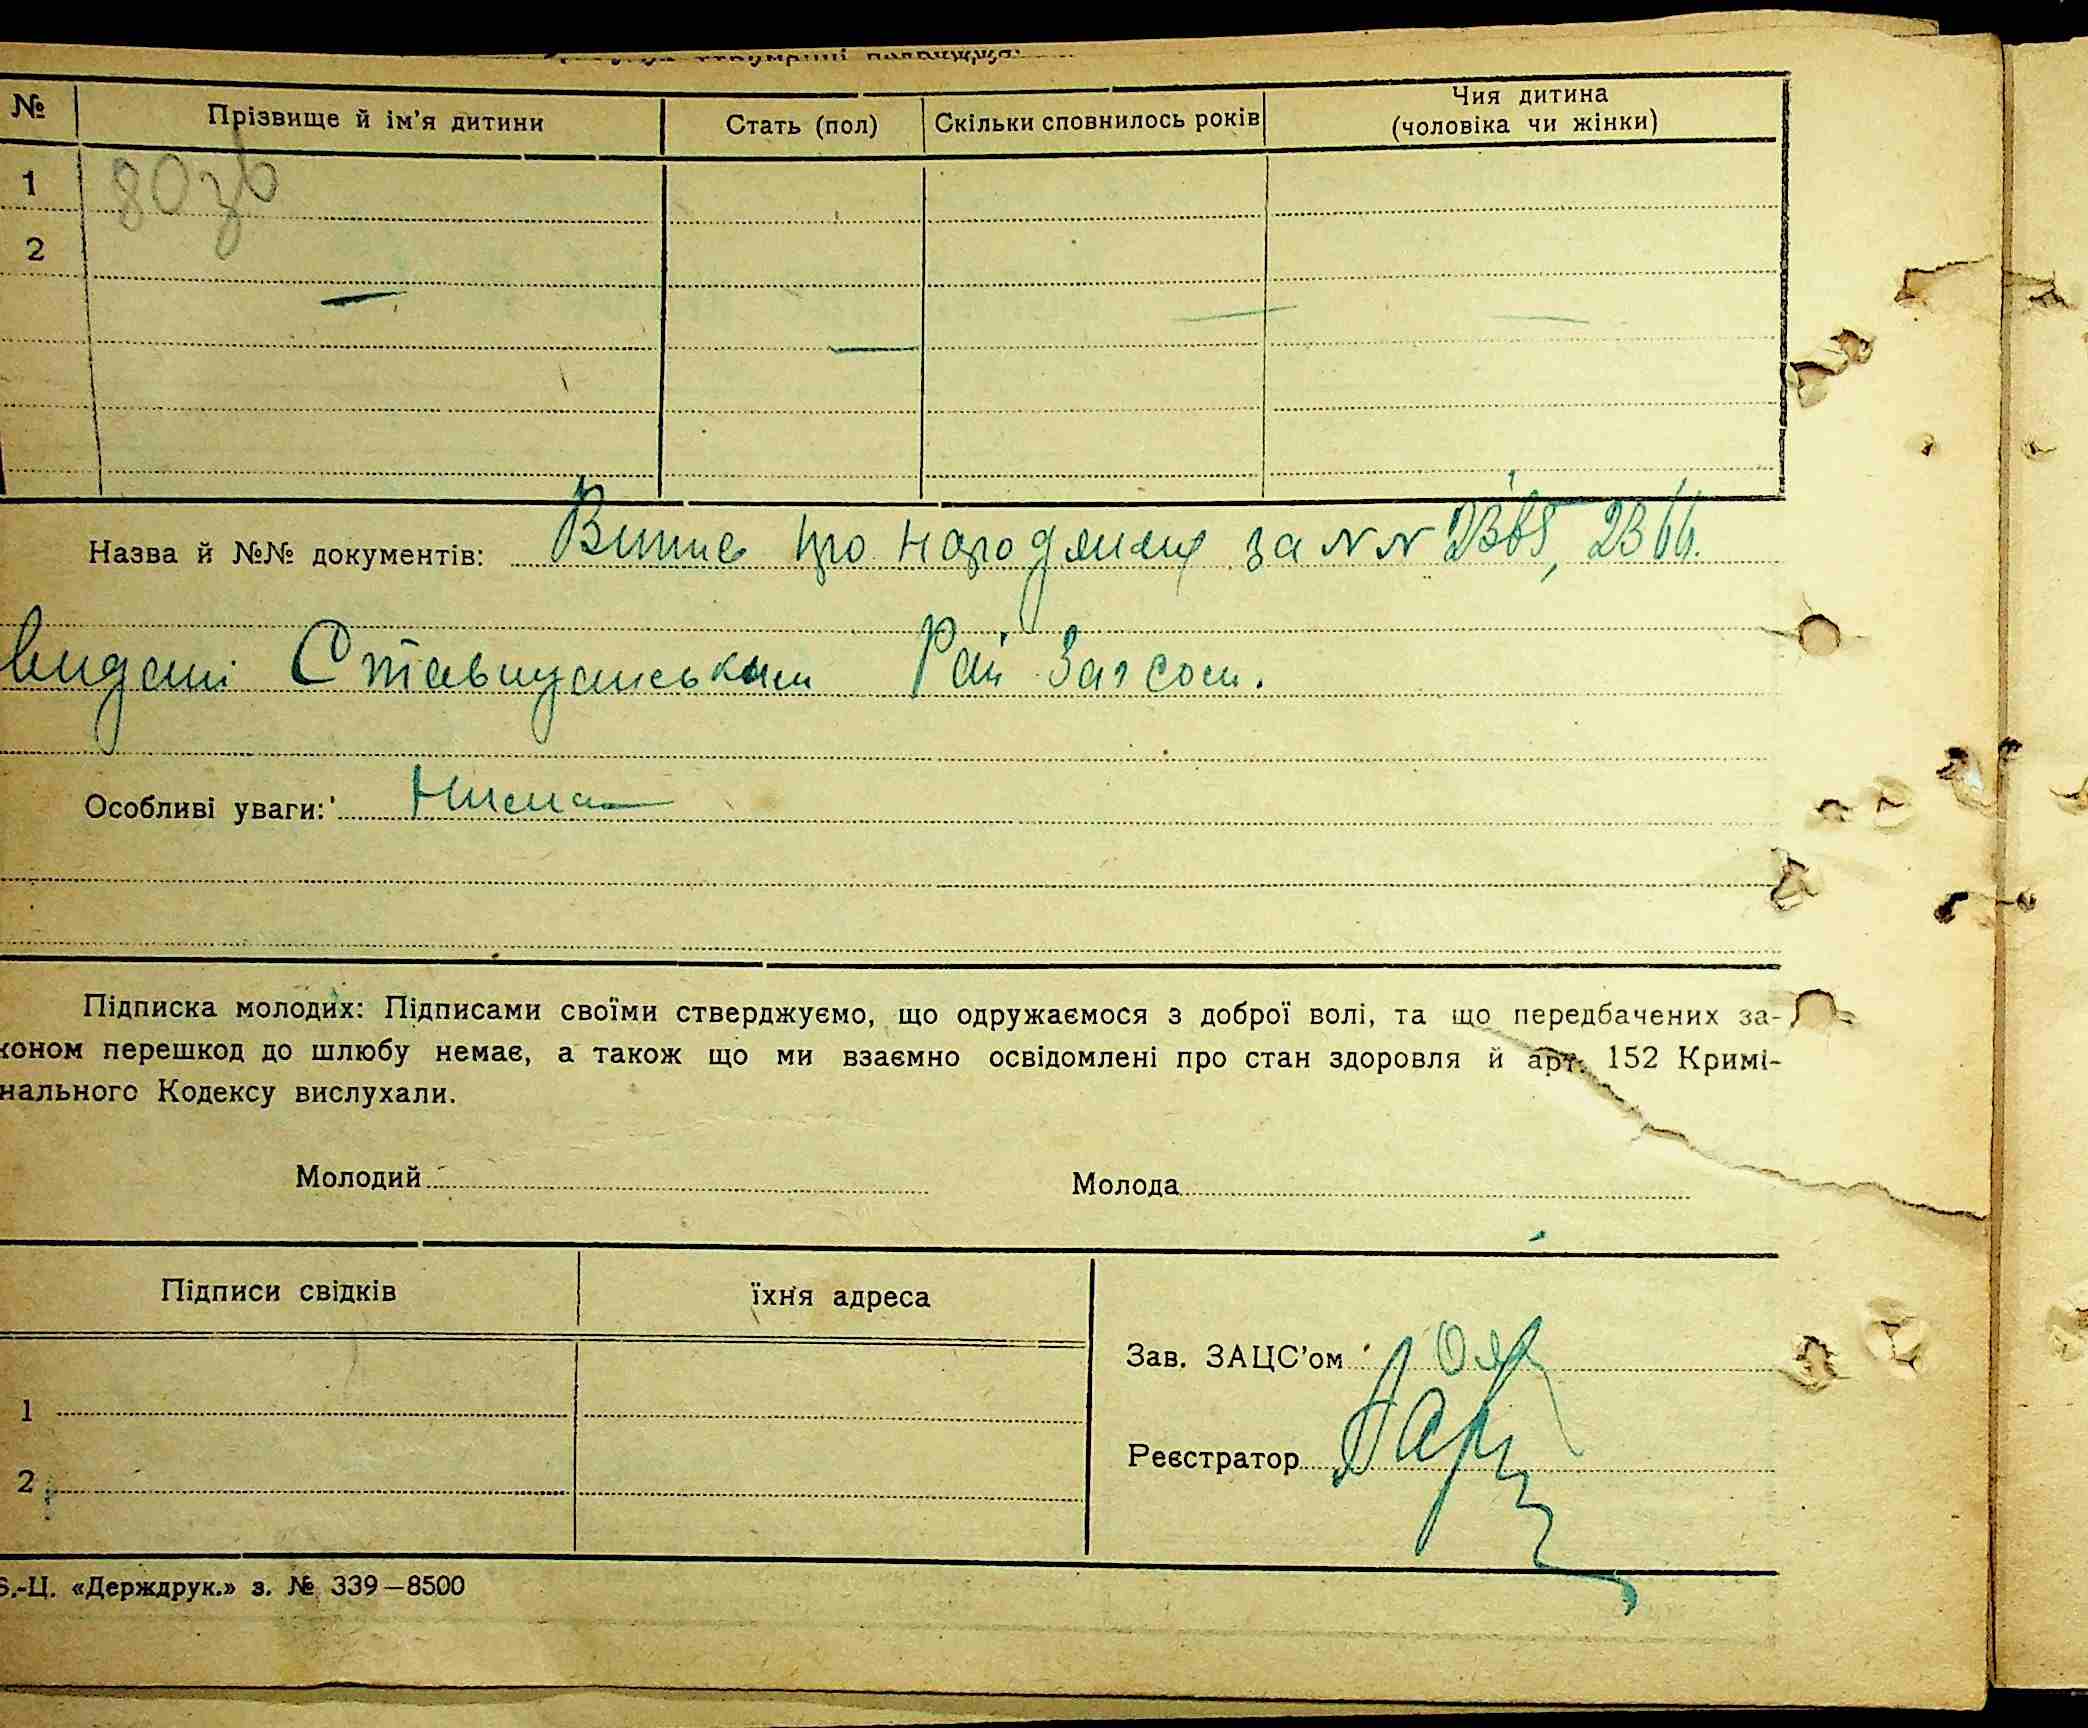 № Прізвище й ім'я дитини Стать (пол) Скільки сповнилось років Чия дитина
(чоловіка чи жінки)
1 80зв
2
Назва й №№ документів: Витис про народження за NN 2365, 2366.
видані Ставищанським Рай Загсом.
Особливі уваги: Нмема
Підписка молодих: Підписами своїми стверджуємо, що одружаємося з доброї волі, та що передбачених за-
коном перешкод до шлюбу немає, а також що ми взаємно освідомлені про стан здоровля й арт. 152 Кримі-
нального Кодексу вислухали.
Молодий Молода
Підписи свідків їхня адреса
Зав. ЗАЦС'ом
1
Реєстратор
2
Б.-Ц. «Держдрук.» з. № 339—8500